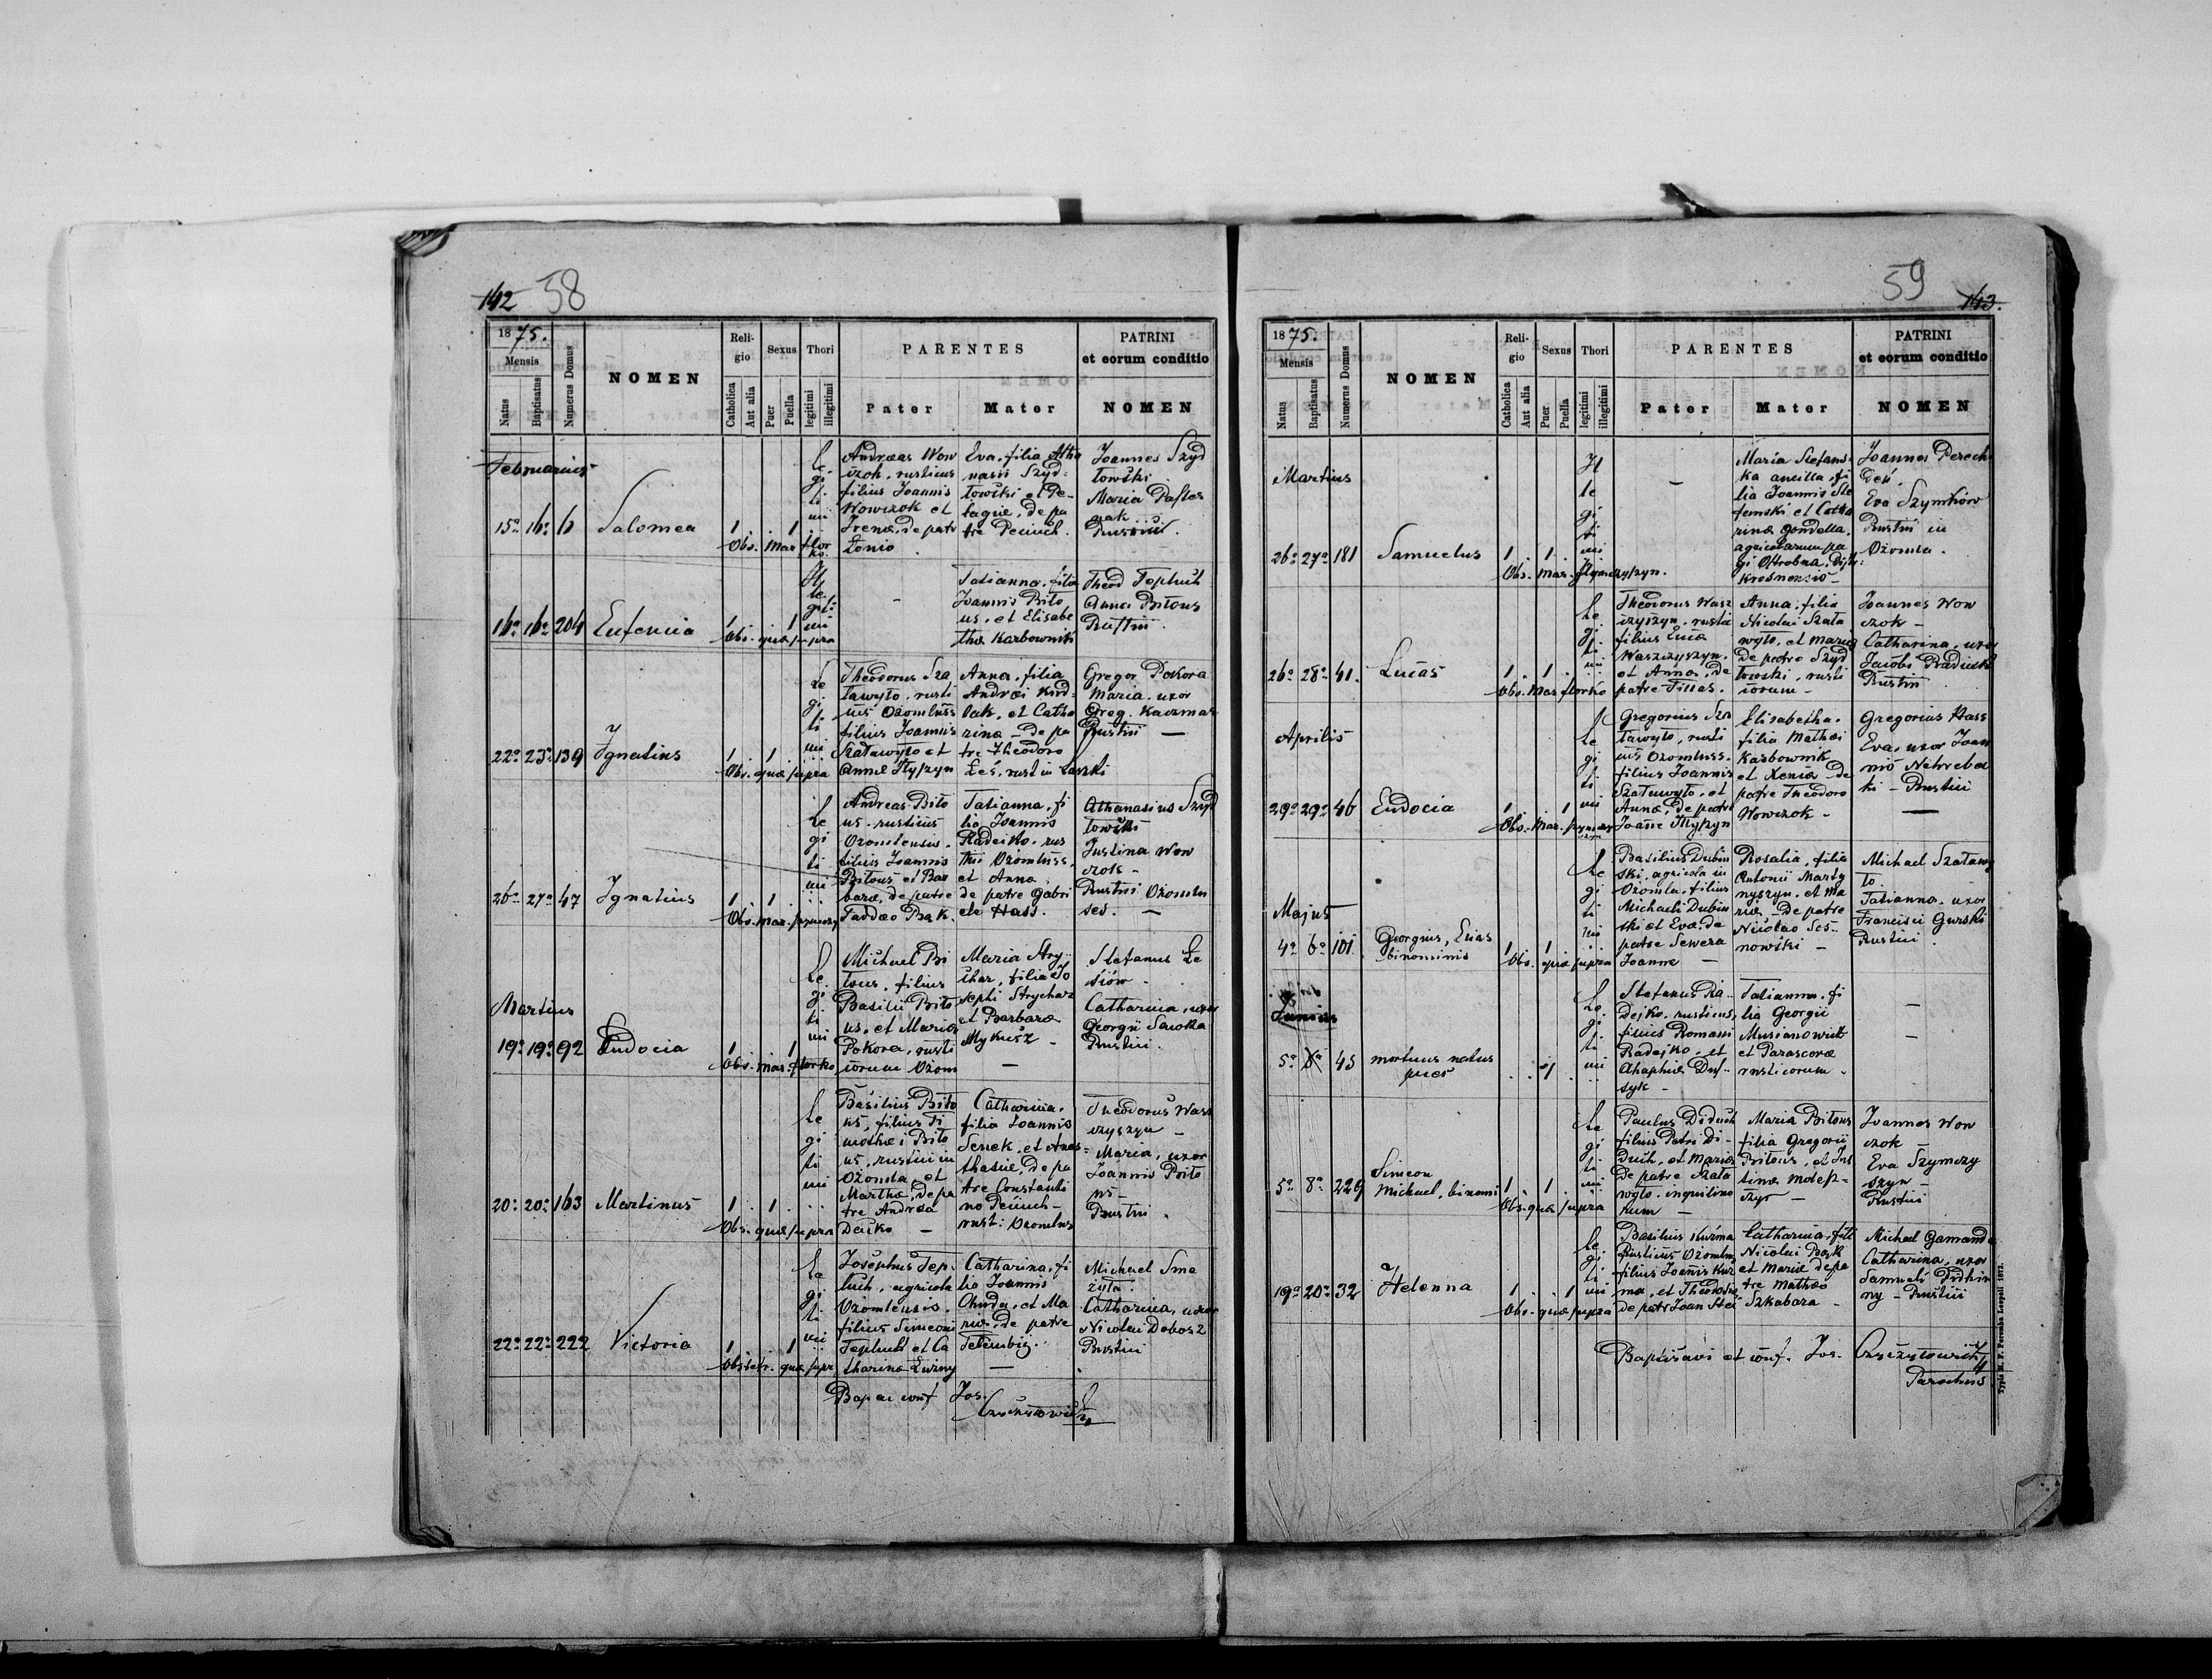 142 58
1875.
Mensis
Natus
Baptisatus
Numerus Domus
NOMEN
Religio
Catholica
Aut alia
Sexus
Puer
Puella
Thori
legitimi
illegitimi
PARENTES
Pater
Mater
PATRINI
et eorum conditio
NOMEN
Februarius
15a 16a 6 Salomea 1 1
Legitimi
Andreas Wow
czok. rusticus
filius Joannis
Wowczok et
Irenæ, de patr
Łonio
Eva, filia Atha
nasii Szyd=
łowski et Pe-
lagiæ, de pa
tre Peciuch.
Joannes Szyd
łowski.
Maria
Rustici.
Obs. Mar florko.
16a 16a 204 Eufemia 1 1
Illegitimi
-
Tatianna, filia
Joannis Bito
us, et Elisabe
tha Karbownik
Theod Tepluch
Anna Bitous
Rustici.
Obs. quæ supra
22a 23a 139 Ignatius 1 1
Legitimi
Theodorus Sza
ławyło, rusti
cus Ożomluss
filius Joannis
Szaławyło et
Annæ Hypzyn
Anna, filia
Andræi Kud=
łak, et Catha
rinæ - de pa
tre Theodoro
Łeś, rust in Laszki
Gregor Pokora
Maria, uxor
Greg. Kaczmar
Rustici -
Obs. quæ supra
26a 27a 47 Ignatius 1 1
Legitimi
Andreas Bito
us. rusticus
Ożomlensus.
filius Joannis
Bitous et Bar
baræ, de patre
Taddæo Bąk.
Tatianna, fi
lia Joannis
Radejko. rus
tici Ożomluss.
et Anna
de patre Gabri
ele Hass.
Athanasius Szyd
łowski
Justina Wow
czok -
Rustici Ożomlu
ses. -
Martius
19a 19a 92 Eudocia 1 1
Legitimi
Michael Bi
tous, filius
Basilii Bito
us, et Maria
Pokora, rusti
corum Ożom
Maria Stry-
char, filia Jo
sephi Strycharz
et Barbara
Mykusz -
-
Stefanus Le
siów -
Catharina, uxor
Georgii Sawka
Rustici.
Obs. Mar. florko
20a 20a 163 Martinus 1 1
Legitimi
Basilius Bito
us, filius Ti
mothæi Bito
us, rustici in
Ożomla, et
Martha, de pa
tre Andræa
Dejko -
Catharina,
filia Joannis
Senek, et Anas=
thasiæ, de pa
tre Constanti
no Peciuch -
rust: Ożomlus
Theodorus Wasz
czyszyn -
Maria, uxor
Joannis Bito
us -
Rustici.
Obs. quæ supra
22a 22a 222 Victoria 1 1
Legitimi
Josephus Tep-
luch, agricola
Ożomlensis.
filius Simeoni
Tepluch et Ca
tharinæ
Catharina, fi
lia Joannis
Chuda, et Ma
riæ, de patre
-
Michael Sma
żyła.
Catharina, uxor
Nicolai Debosz
Rustici
Obstetr. quæ supr
Bap ac conf Jos.
59 143.
1875.
Mensis
Natus
Baptisatus
Numerus Domus
NOMEN
Religio
Catholica
Aut alia
Sexus
Puer
Puella
Thori
legitimi
illegitimi
PARENTES
Pater
Mater
PATRINI
et eorum conditio
NOMEN
Martius
26a 27a 181 Samuelus 1 1
Illegitimi
-
Maria Stefans=
ka ancilla, fi
lia Joannis Ste
fanski et Catha
rinæ Gondella.
agricolarum pa
gi Ostrobna, Distr:
Krosnensis -
Joannes Perech
Eva Szymków
Rustici in
Ożomla.
Obs. Mar. Szymczyszyn.
26a 28a 41. Lucas 1 1
Legitimi
Theodorus Wasz
czyszyn. rustic
filius Lucæ
Waszczyszyn.
et Anna, de
patre Tillas.
Anna, filia
Nicolai Szała
wyło, et Maria
de patre Szyd
łowski, rusti
corum -
Joannes Wow
czok -
Catharina, uxor
Jacobi
Rustici
Obs. Mar florko
Aprilis
29a 29a 46 Eudocia 1 1
Legitimi
Gregorius Sza
ławyło, rusti
cus Ożomluss.
filius Joannis
Szaławyło, et
Annæ, de patre
Joanne Hypzyn
Elisabetha,
filia Mathæi
Karbownik
et Xenia de
patre Theodoro
Wowczok -
Gregorius Hass
Eva, uxor Joan
nis Nehreba
- Rustici
-
Majus
4a 6a 101 Georgius, Elias
binominis 1 1
Legitimi
Basilius Dubin
ski, agricola in
Ożomla, filius
Michaeli Dubin
ski et Eva, de
patre Sewera
Joanne -
Rosalia, filia
Antonii Marty
nyszyn, et Ma
riæ - de patre
Nicolao Sos-
nowski -
Michael Szaławy
ło.
Tatianna, uxor
Francisci Gurski
Rustici.
Obs. quæ supra
Junius
5a 45 mortuus natus
puer 1
Legitimi
Stefanus Ra-
dejko, rusticus,
filius Romani
Radejko, et
Ahaphiæ Duf-
syk -
Tatianna, fi
lia Georgii
Musianowicz
et Parascevæ
rusticorum -
-
-
5a 8a 229 Simeon
Michael, binomi 1 1
Legitimi
Paulus Diduch
filius Petri Di-
duch, et Maria
de patre Szała
wyło, inquilino
rum -
Maria Bitous
filia Gregorii
Bitous, et Jus
tinæ
-
Joannes Wow
czok -
Eva Szymczy
szyn -
Rustici
Obs. quæ supra
19a 20a 32 Helenna 1 1
Legitimi
Basilius Kuźma
Rusticus Ożomlus
filius Joannis Kuź
ma, et Theodosiæ
de patr Joan
Catharina, fili
Nicolai Bąk
et Mariæ de pa
tre Mathæo
Szkabara -
Michael Gamanda
Catharina, uxor
Samueli
- Rustici
Obs. quæ supra
Baptisavi et conf. Jos.
Parochus
Typis M. F. Poremba Leopoli 1872.